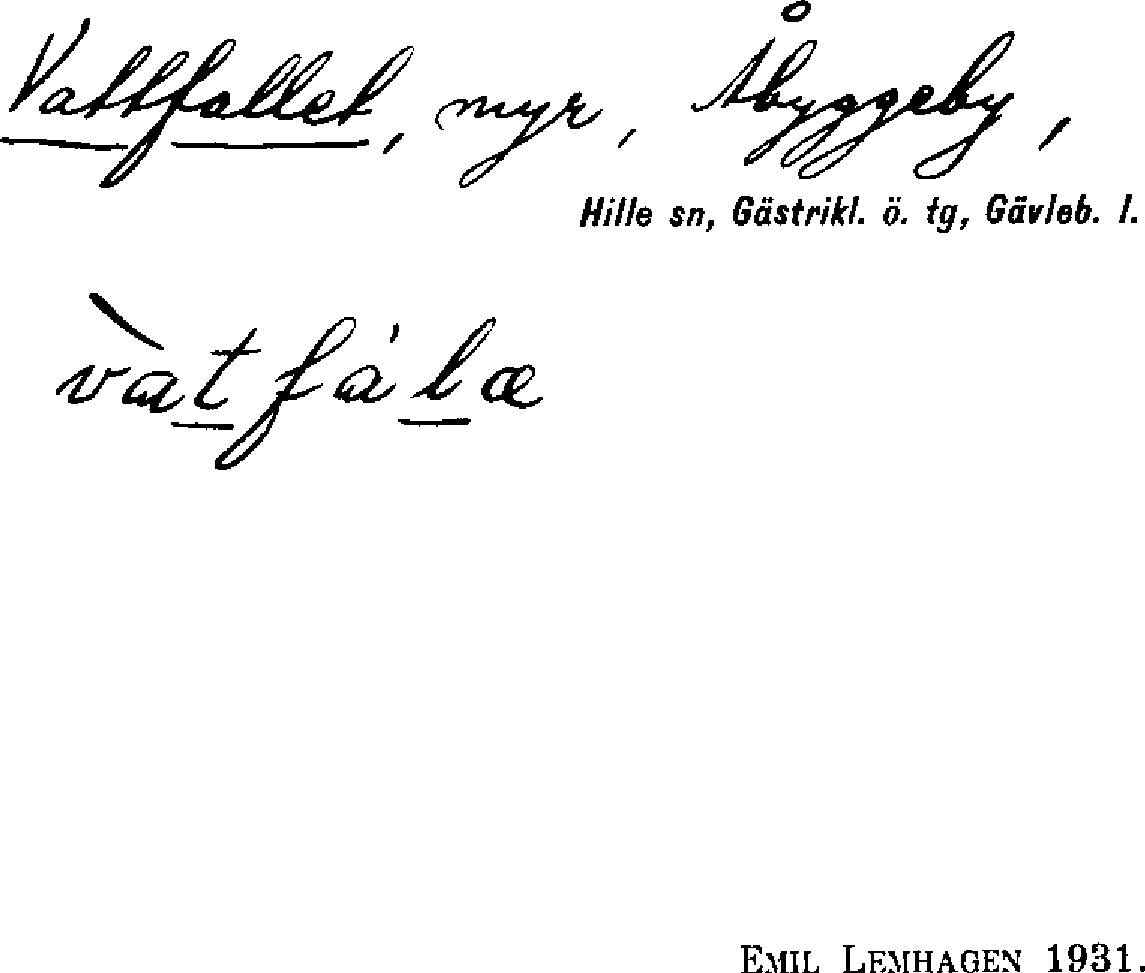 Vattfallet, myr, Åbyggeby,
Hille sn, Gästrikl. ö. tg, Gävleb. l.
vàtfá'læ
EMIL LEMHAGEN 1931.